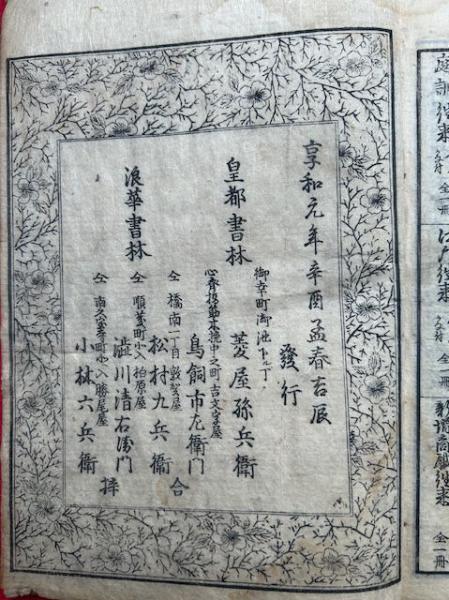 庭訓往来 全一冊
江戸往来 全一冊
商賣往来 全一冊
享和元年辛酉孟春吉辰
發行
皇都書林
御幸町御池下ル丁
菱屋孫兵衛
浪華書林
心斎橋筋木挽中之町 吉文字屋
鳥飼市左衛門
仝 橋南一丁目 敦賀屋
松村九兵衛
仝 順慶町 柏原屋
澁川清右衛門
仝 南久宝寺町 勝尾屋
小林六兵衛
合梓